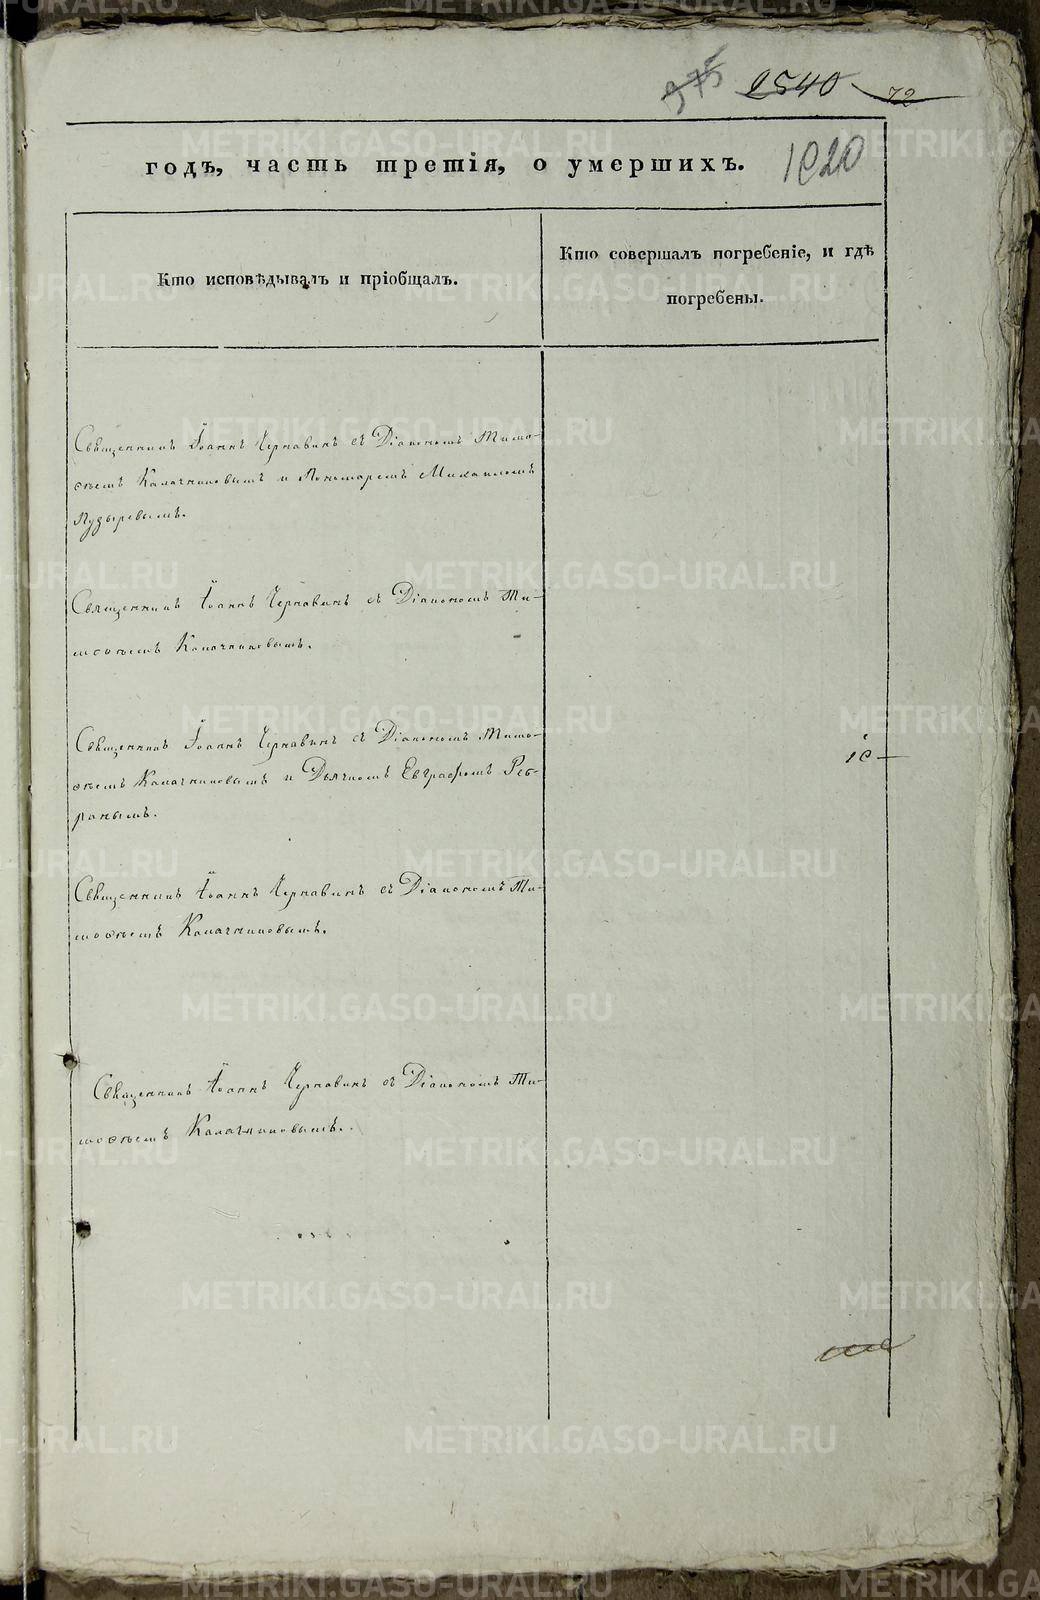 375 2540 72
годъ, часть третія, о умершихъ. 1020
Кто исповѣдывалъ и пріобщалъ.
Кто совершалъ погребеніе, и гдѣ
погребены.
Священникъ Іоаннъ Чернавинъ съ Діакономъ Тимо-
ѳеемъ Калачниковымъ и Пономаремъ Михаиломъ
Пузыревымъ.
Священникъ Іоаннъ Чернавинъ съ Діакономъ Ти-
моѳеемъ Калачниковымъ.
Священникъ Іоаннъ Чернавинъ съ Діакономъ Тимо-
ѳеемъ Калачниковымъ и Дьячкомъ Евграфомъ Реб-
ринымъ.
Священникъ Іоаннъ Чернавинъ съ Діакономъ Ти-
моѳеемъ Калачниковымъ.
Священникъ Іоаннъ Чернавинъ съ Діакономъ Ти-
моѳеемъ Калачниковымъ.
METRIKI.GASO-URAL.RU